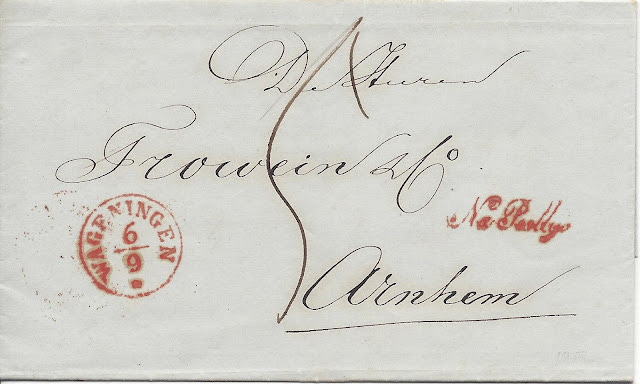 De Heeren
Frowein & Co
Na Posttyd
WAGENINGEN
6/9
Arnhem
5